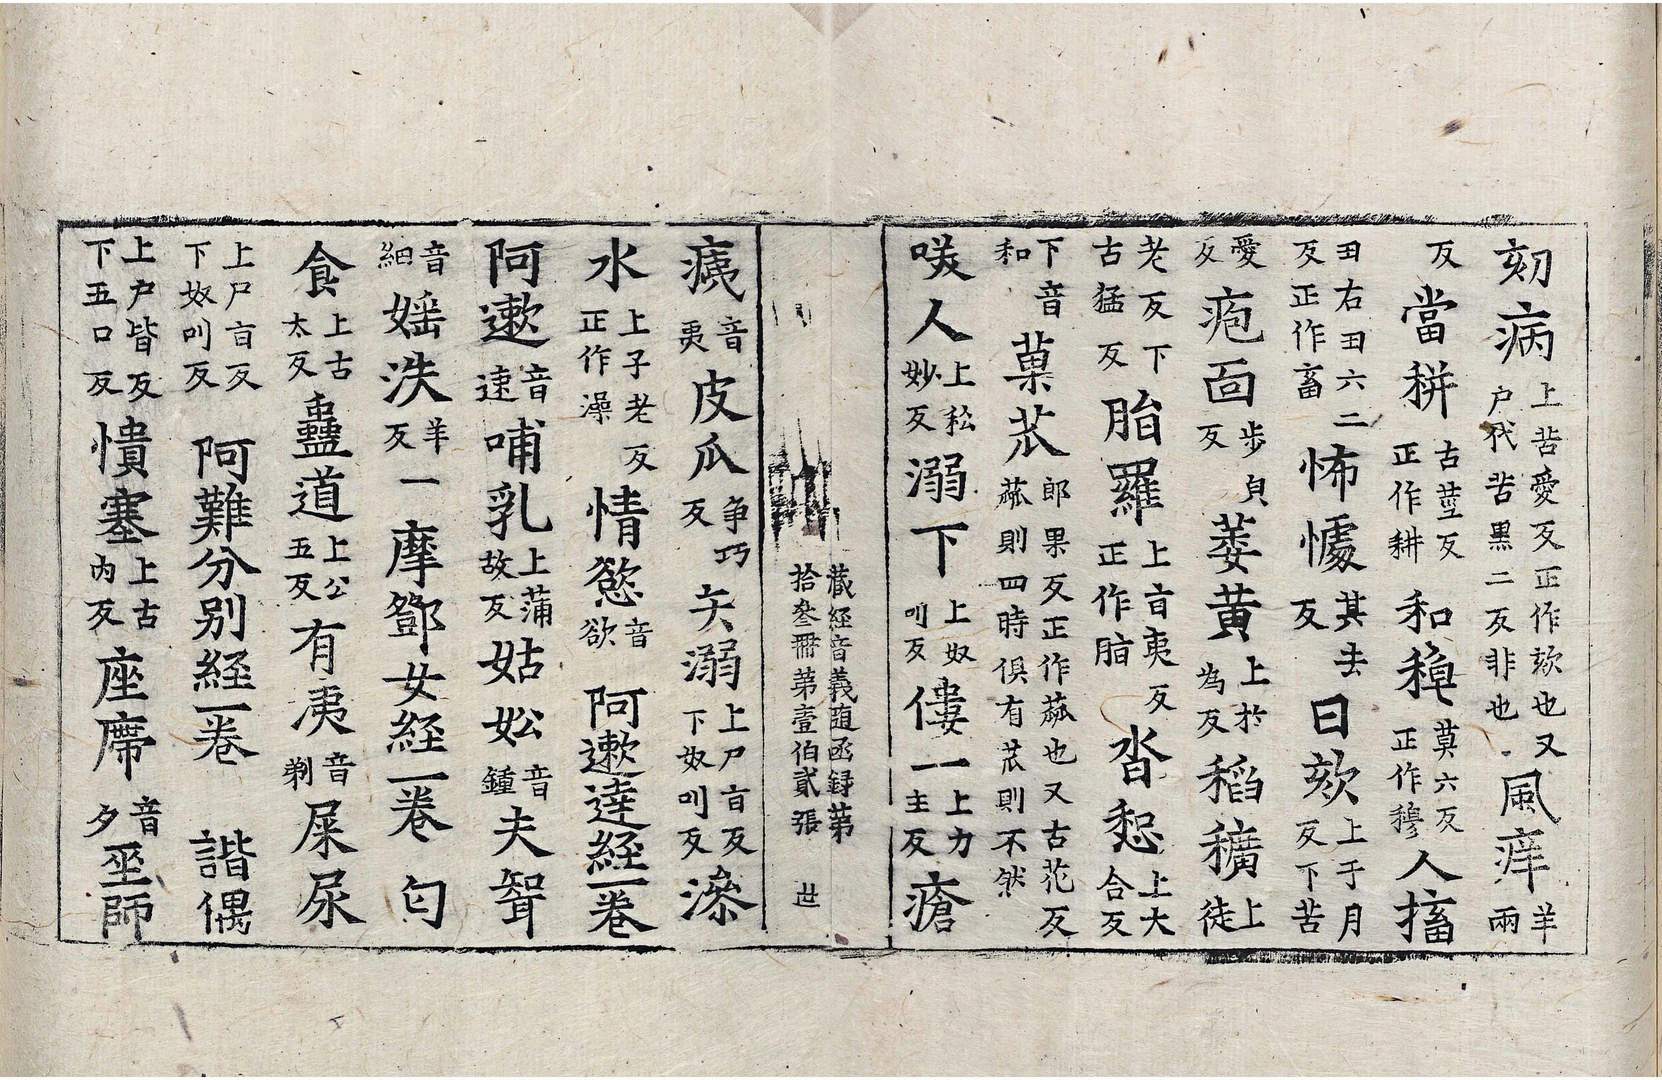 刻病上苦愛反正作欬也又戶代苦黒二反非也風痒羊兩
反當耕古莖反正作耕和穆莫六反正作穆人搐
丑右丑六二反正作畜怖懅其去反曰欬上于月反下苦
愛反疱面步皃反萎黄上於為反稻穬上徒
老反下古猛反胎羅上盲夷反正作脂沓惒上大合反
下音和菓苽郎果反正作蓏也又古花反蓏則四時俱有苽則不然
咲人上私妙反溺下上奴叫反僂一上力主反瘡
藏経音義随函録第拾叁冊第壹伯貳張 世
痍音夷皮瓜争巧反矢溺上尸旨反下奴叫反澡
水上子老反正作澡情慾音欲 阿遬達経一卷
阿遬音速哺乳上蒲故反姑妐音鍾夫聟
音細婬泆羊反一摩鄧女経一卷 匂
食上古太反蠱道上公五反有洟音剃屎尿
上尸旨反下奴叫反 阿難分别経一卷 諧偶
上戶皆反下五口反憒塞上古內反座席音夕巫師